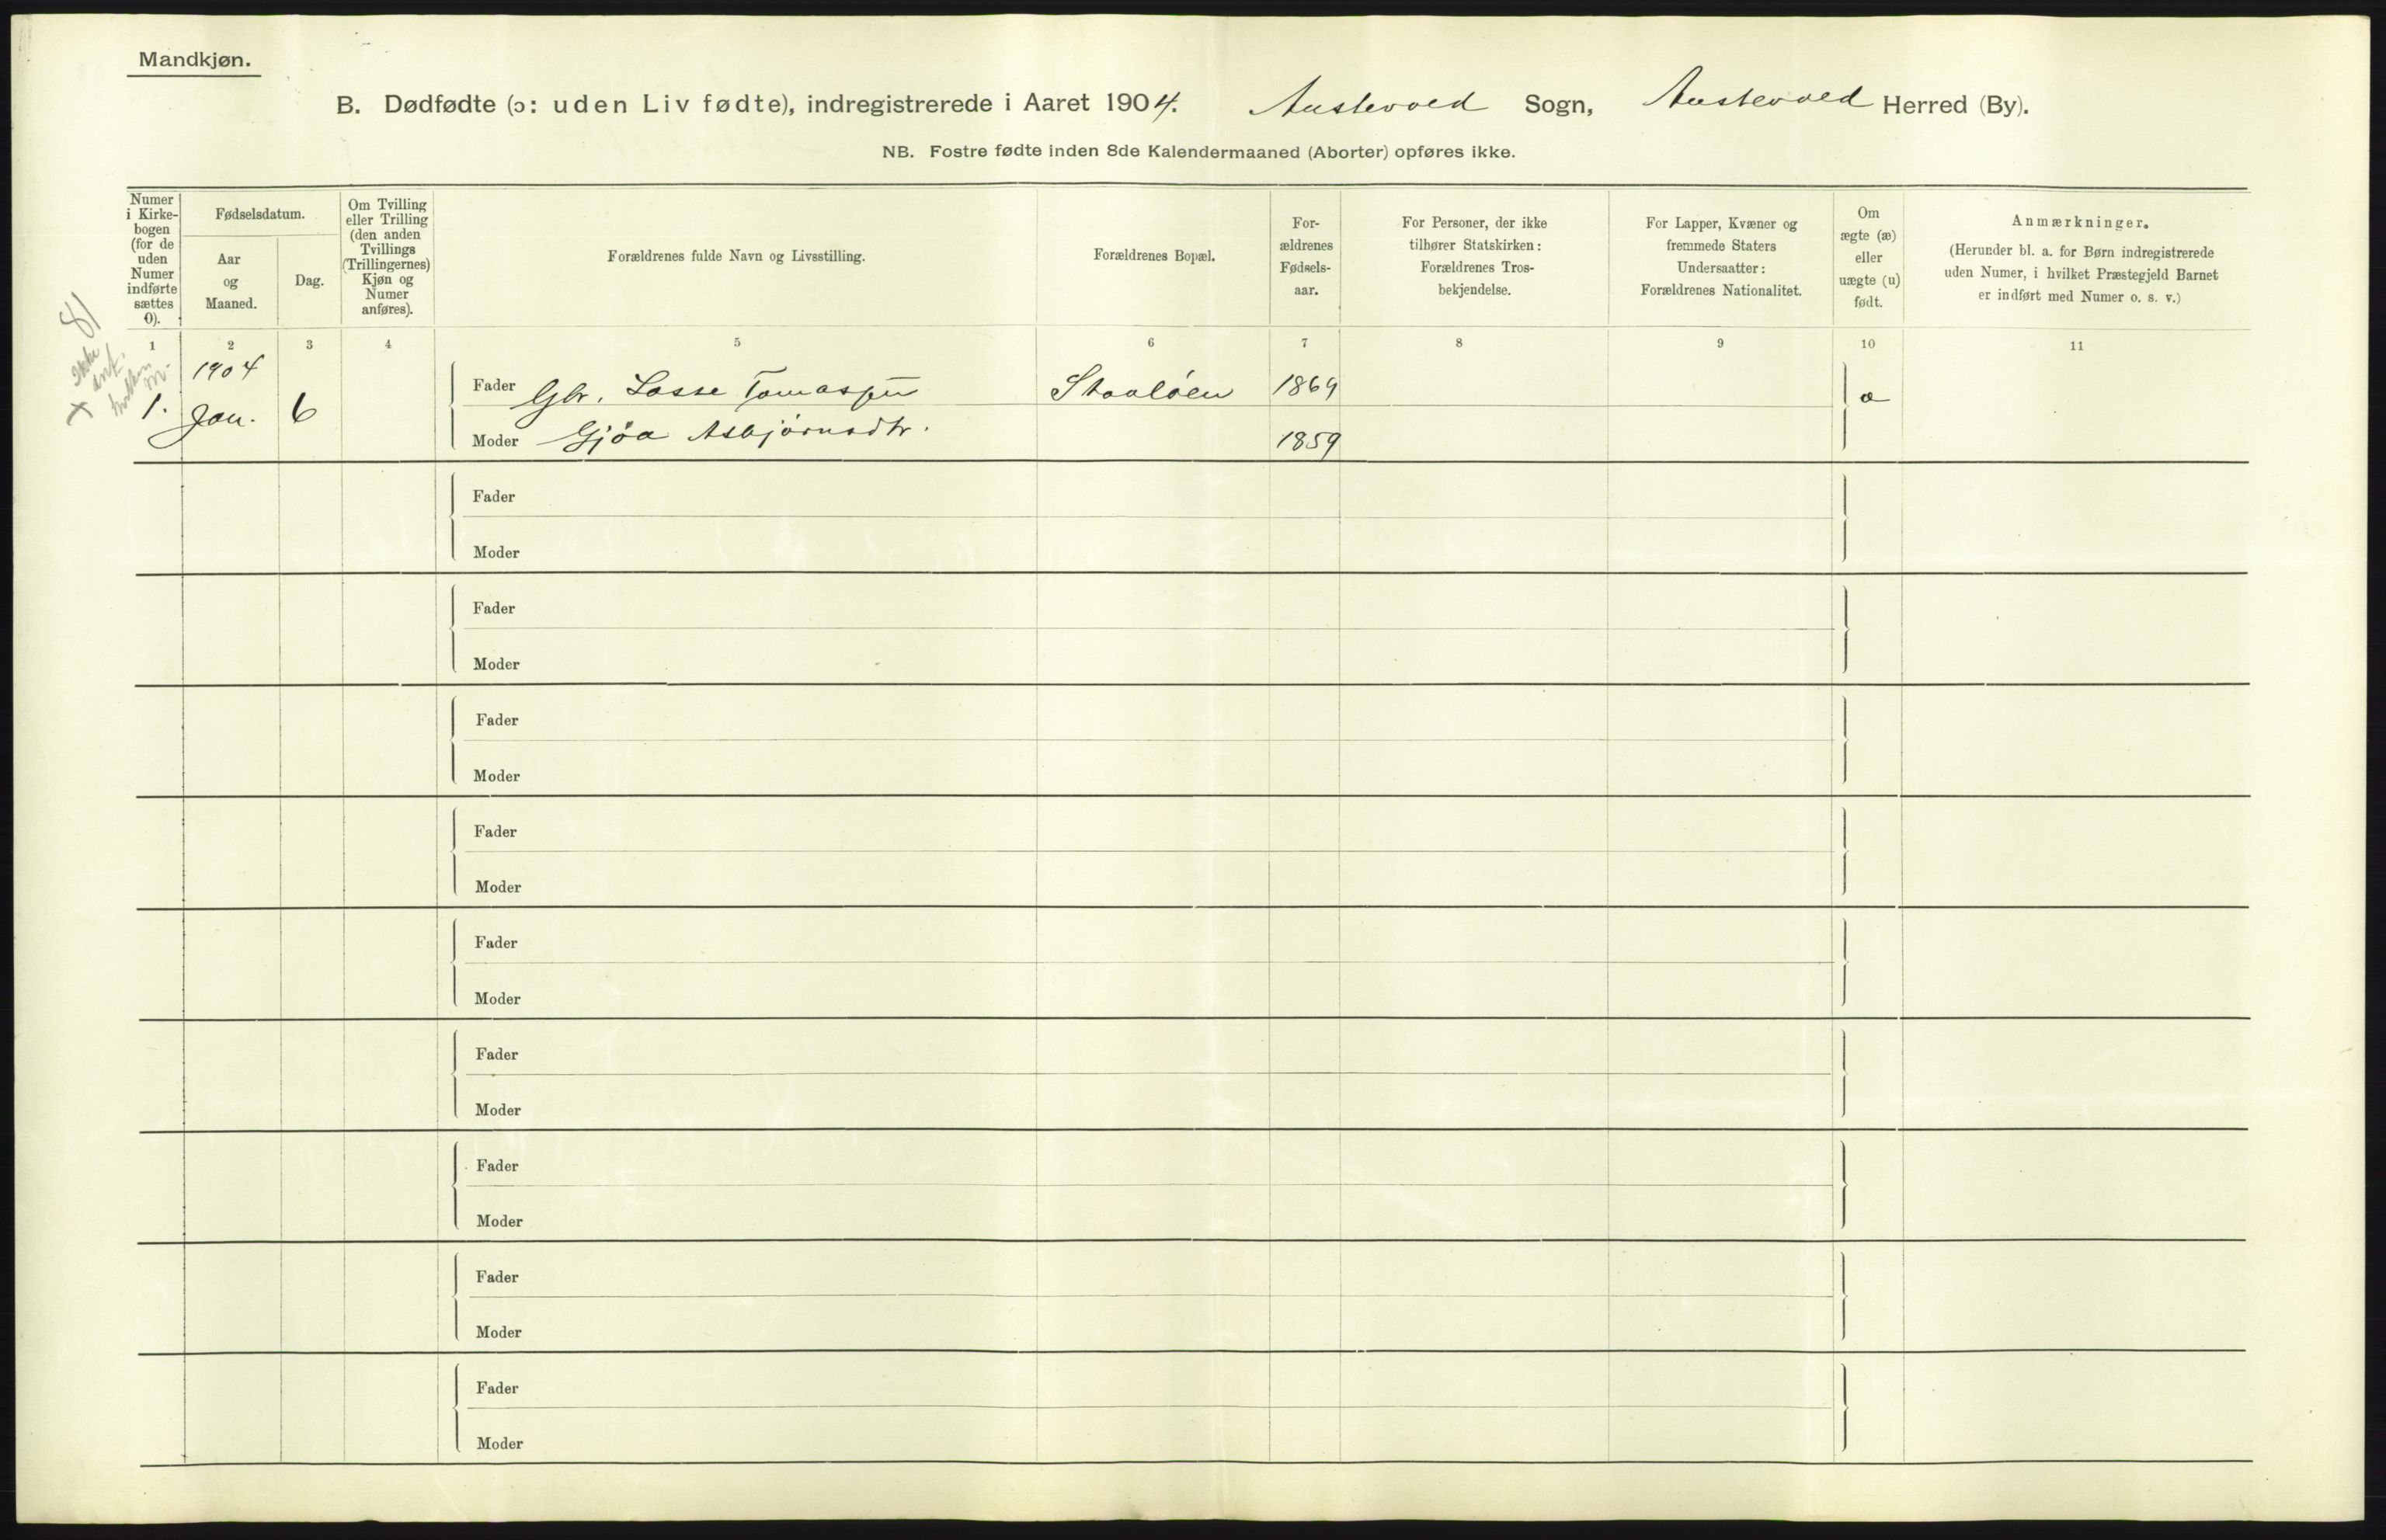 Mandkjøn.
B. Dødfødte (ɔ: uden Liv fødte), indregistrerede i Aaret 1904. Austevold Sogn, Austevold Herred (By).
NB. Fostre fødte inden 8de Kalendermaaned (Aborter) opføres ikke.
Numer
i Kirke-
bogen
(for de
uden
Numer
indførte
sættes
0).
Fødselsdatum.
Aar
og
Maaned.
Dag.
Om Tvilling
eller Trilling
(den anden
Tvillings
(Trillingernes)
Kjøn og
Numer
anføres).
Forældrenes fulde Navn og Livsstilling.
Forældrenes Bopæl.
For-
ældrenes
Fødsels-
aar.
For Personer, der ikke
tilhører Statskirken:
Forældrenes Tros-
bekjendelse.
For Lapper, Kvæner og
fremmede Staters
Undersaatter:
Forældrenes Nationalitet.
Om
ægte (æ)
eller
uægte (u)
født.
Anmærkninger.
(Herunder bl. a. for Børn indregistrerede
uden Numer, i hvilket Præstegjeld Barnet
er indført med Numer o. s. v.)
1 2 3 4 5 6 7 8 9 10 11
81
Ikke
ant.
x
1904
1. Jan. 6
Fader Gbr. Lasse Tomassen 1869
Moder Gjøa Asbjørnsdtr. 1859
Fader
Moder
Fader
Moder
Fader
Moder
Fader
Moder
Fader
Moder
Fader
Moder
Fader
Moder
Fader
Moder
Fader
Moder